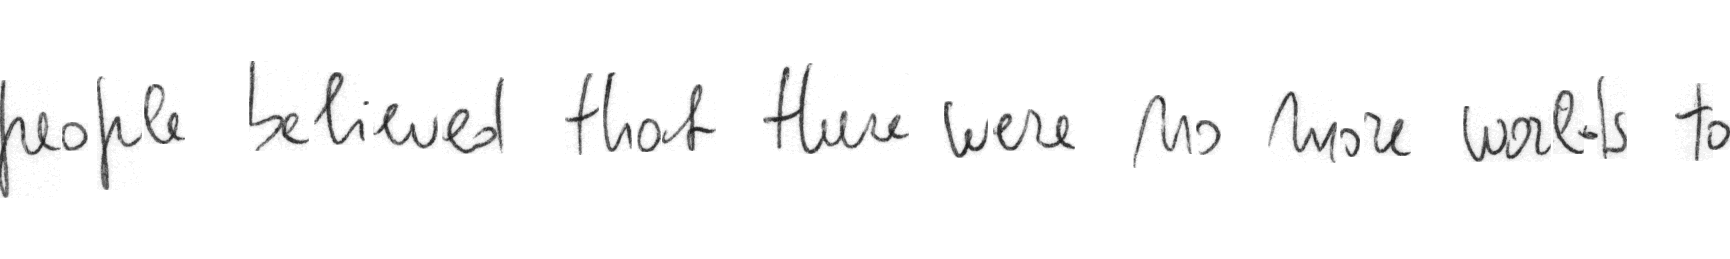 people believed that there were no more worlds to